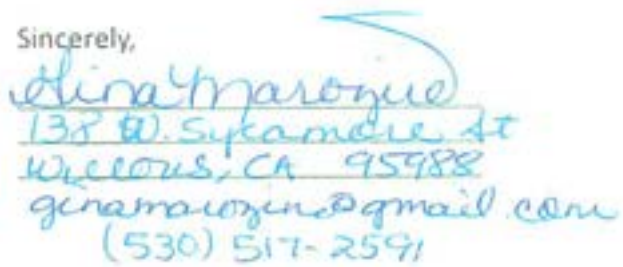 Sincerely,
Gina Marozue
138 W. Sycamore St
Willows, CA 95988
ginamarozine@gmail.com
(530) 517-2591